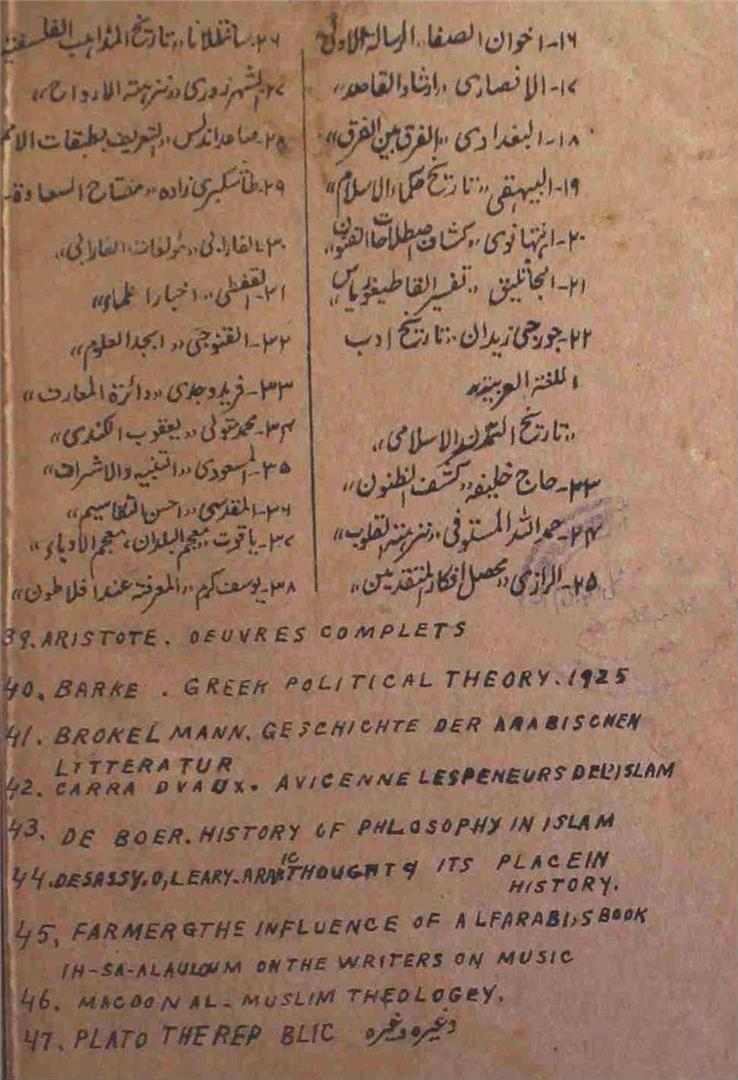 ۱۶-اخوان الصفا „الرسالة الاولی
۱۷-الانصاری „ارشاد القاصد„
۱۸-البغدادی „الفرق بین الفرق„
۱۹-البیهقی „تاریخ حکماء الاسلام„
۲۰-التهانوی „کشاف اصطلاحات الفنون„
۲۱-الجاثلیق „تفسیر القاطیغوریاس„
۲۲-جورجی زیدان „تاریخ ادب
اللغة العربیة„
„تاریخ التمدن الاسلامی„
۲۳-حاج خلیفه „کشف الظنون„
۲۴-حمدالله المستوفی „نزهة القلوب„
۲۵-الرازی „محصل افکار المتقدمین„
۲۶-سانتلانا „تاریخ المذاهب الفلسفیة
۲۷-الشهرزوری „نزهة الارواح„
۲۸-صاعد اندلس „التعریف بطبقات الامم
۲۹-طاشکبری زاده „مفتاح السعادة-
۳۰-الفارابی „مؤلفات الفارابی„
۳۱-القفطی „اخبار العلماء„
۳۲-القنوجی „ابجد العلوم„
۳۳-فرید وجدی „دائرة المعارف„
۳۴-محمد متولی „یعقوب الکندی„
۳۵-المسعودی „التنبیه والاشراف„
۳۶-المقدسی „احسن التقاسیم„
۳۷-یاقوت „معجم البلدان، معجم الادباء„
۳۸-یوسف کرم „المعرفة عند افلاطون„
39. ARISTOTE. OEUVRES COMPLETS
40. BARKE . GREEK POLITICAL THEORY. 1925
41. BROKELMANN. GESCHICHTE DER ARABISCHEN
LITTERATUR
42. CARRA DVAUX. AVICENNE LESPENEURS DEL'ISLAM
43. DE BOER. HISTORY OF PHLOSOPHY IN ISLAM
44. DESASSY. O, LEARY. ARABIC THOUGHT & ITS PLACEIN
HISTORY.
45. FARMER G THE INFLUENCE OF ALFARABI,S BOOK
IH-SA-ALAULOUM ON THE WRITERS ON MUSIC
46. MACDONAL - MUSLIM THEOLOGEY.
47. PLATO THE REP BLIC وغیره وغیره